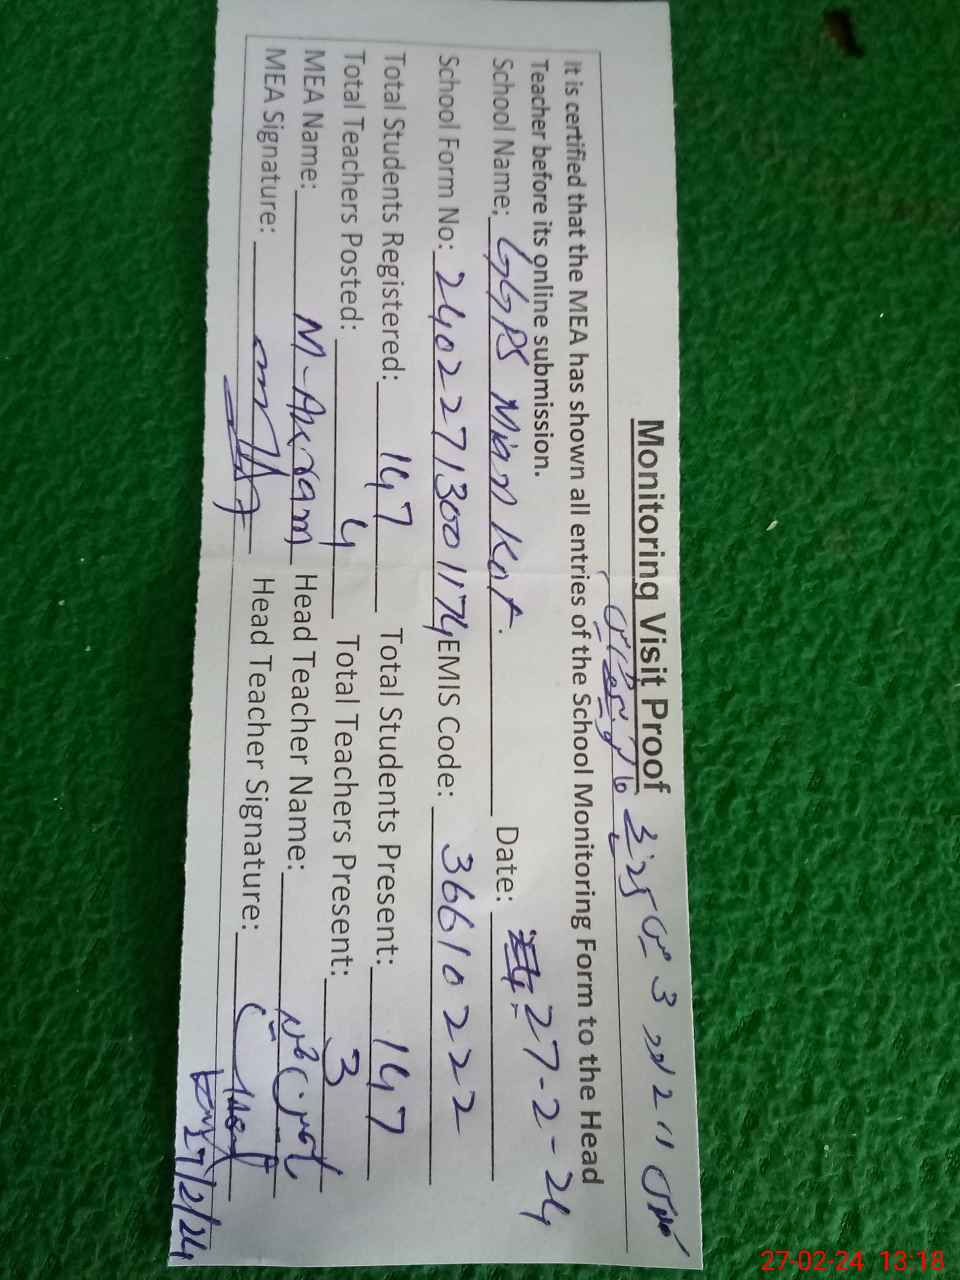 Monitoring Visit Proof
It is certified that the MEA has shown all entries of the School Monitoring Form to the Head
Teacher before its online submission.
School Name: GGPS Mian Kot. Date: 27-2-24
School Form No: 24022713001174 EMIS Code: 36610222
Total Students Registered: 147 Total Students Present: 147
Total Teachers Posted: 4 Total Teachers Present: 3
MEA Name: M-Akram Head Teacher Name:
MEA Signature: Head Teacher Signature:
27/2/24
27-02-24 13:18